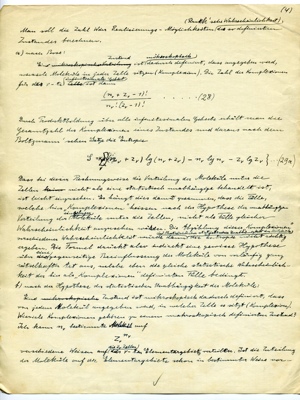 (4)
(Bose'sche Wahrscheinlichkeit),
Man soll die Zahl der Realisierungs-Möglichkeiten des so definierten
Zustandes berechnen.
a) nach Bose:
Zustand mikroskopisch
ist dadurch definiert, dass angegeben wird,
wieviele Moleküle in jeder Zelle sitzen (Komplexion). Die Zahl der Komplexionen
für das ν-te
(nν + zν - 1)!
nν! (zν - 1)! ..... (28)
Durch Produktbildung über alle infinitesimalen Gebiete erhält man die
Gesamtzahl der Komplexionen eines Zustandes und daraus nach dem
Boltzmann'schen Satze die Entropie
S = (nν + zν) lg (nν + zν) - nν lg nν - zν lg zν } ... (29a)
Dass bei dieser Rechnungsweise die Verteilung der Moleküle unter die
Zellen nicht als eine statistisch unabhängige behandelt ist,
ist leicht einzusehen. Es hängt dies damit zusammen, dass die Fälle,
welche hier „Komplexionen" heissen nach der Hypothese der unabhängigen
Verteilung der Moleküle unter die Zellen, nicht als Fälle gleicher
Wahrscheinlichkeit anzusehen wären. Die Abzählung dieser „Komplexionen"
verschiedener Wahrscheinlichkeit
Die Formel drückt also indirekt eine gewisse Hypothese
über gegenseitige Beeinflussung der Moleküle von vorläufig ganz
rätselhafter Art aus, welche eben die gleiche statistische Wahrscheinlich-
keit der hier als Komplexionen definierten Fälle bedingt.
b) nach der Hypothese der statistischen Unabhängigkeit der Moleküle:
Zustand ist mikroskopisch dadurch definiert, dass
von jedem Molekül angegeben wird, in welcher Zelle es sitzt (Komplexion).
Wieviele Komplexionen gehören zu einem makroskopisch definierten Zustand?
Ich kann nν bestimmte Moleküle auf
zν^nν
verschiedene Weisen auf die Zellen des ν-ten Elementargebietes verteilen. Ist die Zuteilung
der Moleküle auf die Elementargebiete schon in bestimmter Weise vor-